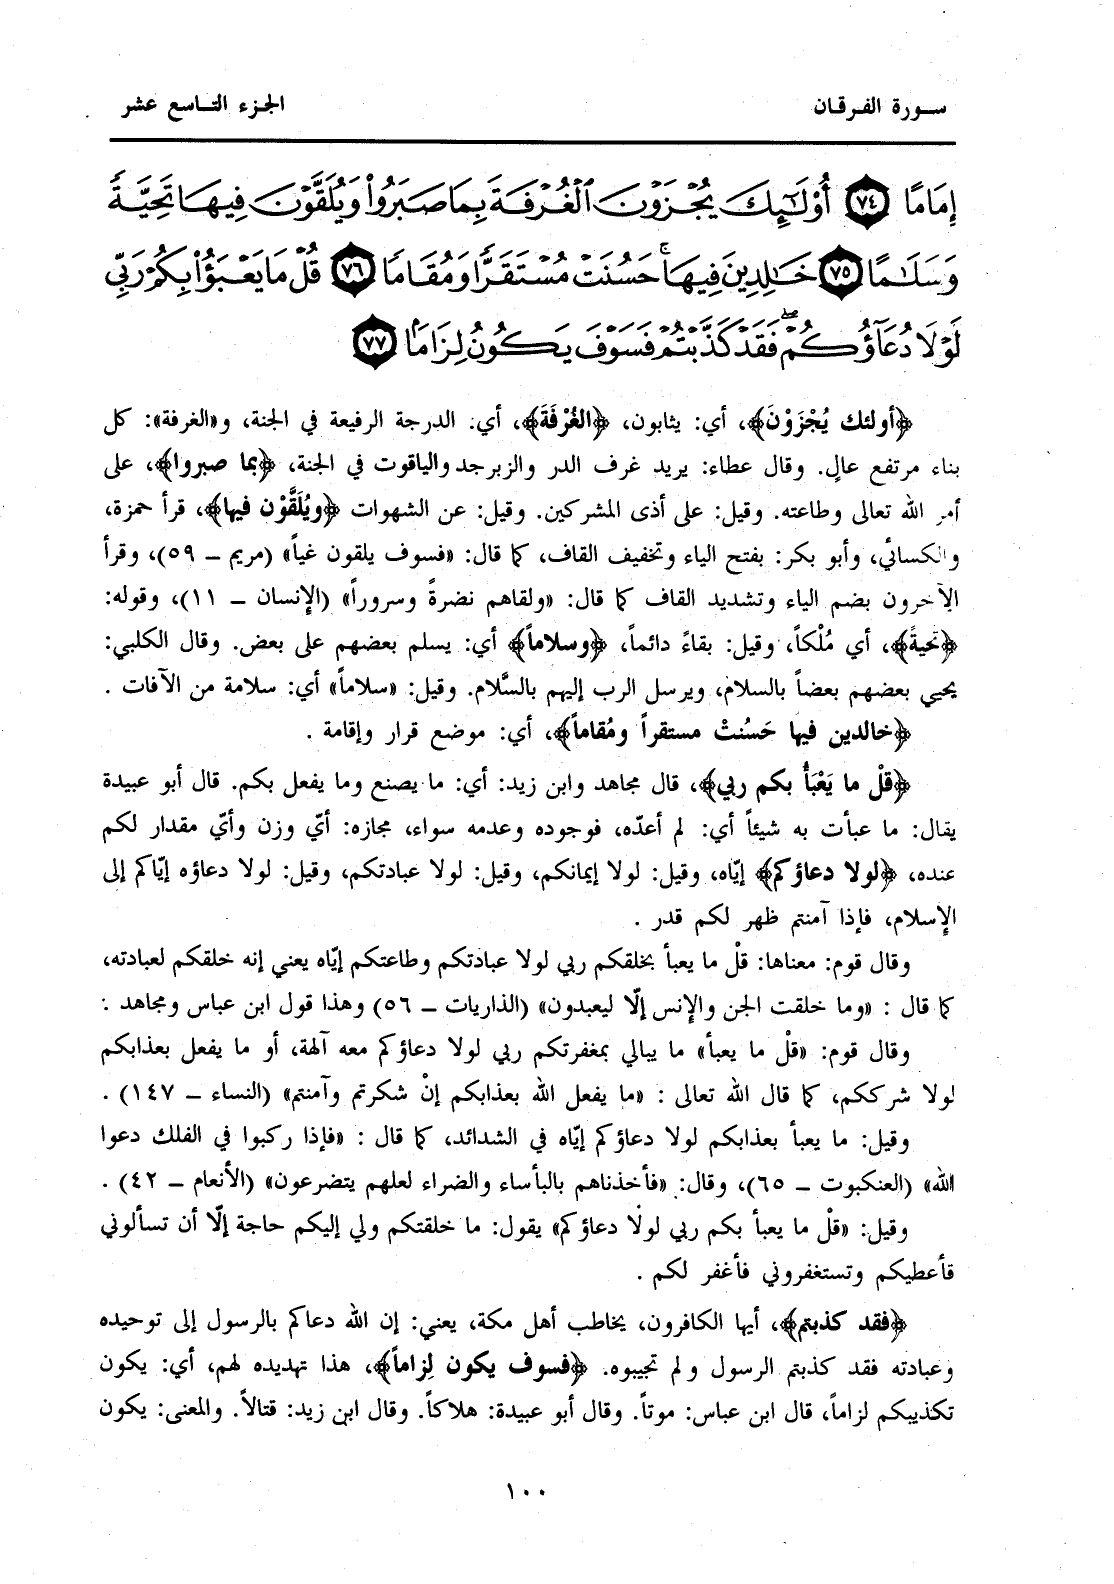 سورة الفرقان
الجزء التاسع عشر
إِمَامًا ﴿٧٤﴾ أُوْلَٰٓئِكَ يُجۡزَوۡنَ ٱلۡغُرۡفَةَ بِمَا صَبَرُواْ وَيُلَقَّوۡنَ فِيهَا تَحِيَّةٗ
وَسَلَٰمًا ﴿٧٥﴾ خَٰلِدِينَ فِيهَاۚ حَسُنَتۡ مُسۡتَقَرّٗا وَمُقَامٗا ﴿٧٦﴾ قُلۡ مَا يَعۡبَؤُاْ بِكُمۡ رَبِّي
لَوۡلَا دُعَآؤُكُمۡۖ فَقَدۡ كَذَّبۡتُمۡ فَسَوۡفَ يَكُونُ لِزَامَۢا ﴿٧٧﴾
﴿أولئك يُجْزَوْنَ﴾، أي: يثابون، ﴿الغُرْفَةَ﴾، أي: الدرجة الرفيعة في الجنة، و«الغرفة»: كل
بناء مرتفع عالٍ. وقال عطاء: يريد غرف الدر والزبرجد والياقوت في الجنة، ﴿بما صبروا﴾، على
أمر الله تعالى وطاعته. وقيل: على أذى المشركين. وقيل: عن الشهوات ﴿ويُلَقَّوْن فيها﴾، قرأ حمزة،
والكسائي، وأبو بكر: بفتح الياء وتخفيف القاف، كما قال: «فسوف يلقون غياً» (مريم ــ ٥٩)، وقرأ
الآخرون بضم الياء وتشديد القاف كما قال: «ولقاهم نضرةً وسروراً» (الإنسان ــ ١١)، وقوله:
﴿تحيةً﴾، أي مُلْكاً، وقيل: بقاءً دائماً، ﴿وسلاماً﴾ أي: يسلم بعضهم على بعض. وقال الكلبي:
يحيي بعضهم بعضاً بالسلام، ويرسل الرب إليهم بالسَّلام. وقيل: «سلاماً» أي: سلامة من الآفات .
﴿خالدين فيها حَسُنتْ مستقراً ومُقاماً﴾، أي: موضع قرار وإقامة .
﴿قلْ ما يَعْبَأُ بكم ربي﴾، قال مجاهد وابن زيد: أي: ما يصنع وما يفعل بكم. قال أبو عبيدة
يقال: ما عبأت به شيئاً أي: لم أعدّه، فوجوده وعدمه سواء، مجازه: أيّ وزن وأيّ مقدار لكم
عنده، ﴿لولا دعاؤكم﴾ إيّاه، وقيل: لولا إيمانكم، وقيل: لولا عبادتكم، وقيل: لولا دعاؤه إيّاكم إلى
الإسلام، فإذا آمنتم ظهر لكم قدر .
وقال قوم: معناها: قلْ ما يعبأ بخلقكم ربي لولا عبادتكم وطاعتكم إيّاه يعني إنه خلقكم لعبادته،
كما قال : «وما خلقت الجن والإنس إلّا ليعبدون» (الذاريات ــ ٥٦) وهذا قول ابن عباس ومجاهد .
وقال قوم: «قلْ ما يعبأ» ما يبالي بمغفرتكم ربي لولا دعاؤكم معه آلهة، أو ما يفعل بعذابكم
لولا شرككم، كما قال الله تعالى : «ما يفعل الله بعذابكم إنْ شكرتم وآمنتم» (النساء ــ ١٤٧) .
وقيل: ما يعبأ بعذابكم لولا دعاؤكم إيّاه في الشدائد، كما قال : «فإذا ركبوا في الفلك دعوا
الله» (العنكبوت ــ ٦٥)، وقال: «فأخذناهم بالبأساء والضراء لعلهم يتضرعون» (الأنعام ــ ٤٢) .
وقيل: «قلْ ما يعبأ بكم ربي لولا دعاؤكم» يقول: ما خلقتكم ولي إليكم حاجة إلّا أن تسألوني
فأعطيكم وتستغفروني فأغفر لكم .
﴿فقد كذبتم﴾، أيها الكافرون، يخاطب أهل مكة، يعني: إن الله دعاكم بالرسول إلى توحيده
وعبادته فقد كذبتم الرسول ولم تجيبوه. ﴿فسوف يكون لِزاماً﴾، هذا تهديده لهم، أي: يكون
تكذيبكم لزاماً، قال ابن عباس: موتاً. وقال أبو عبيدة: هلاكاً. وقال ابن زيد: قتالاً. والمعنى: يكون
١٠٠